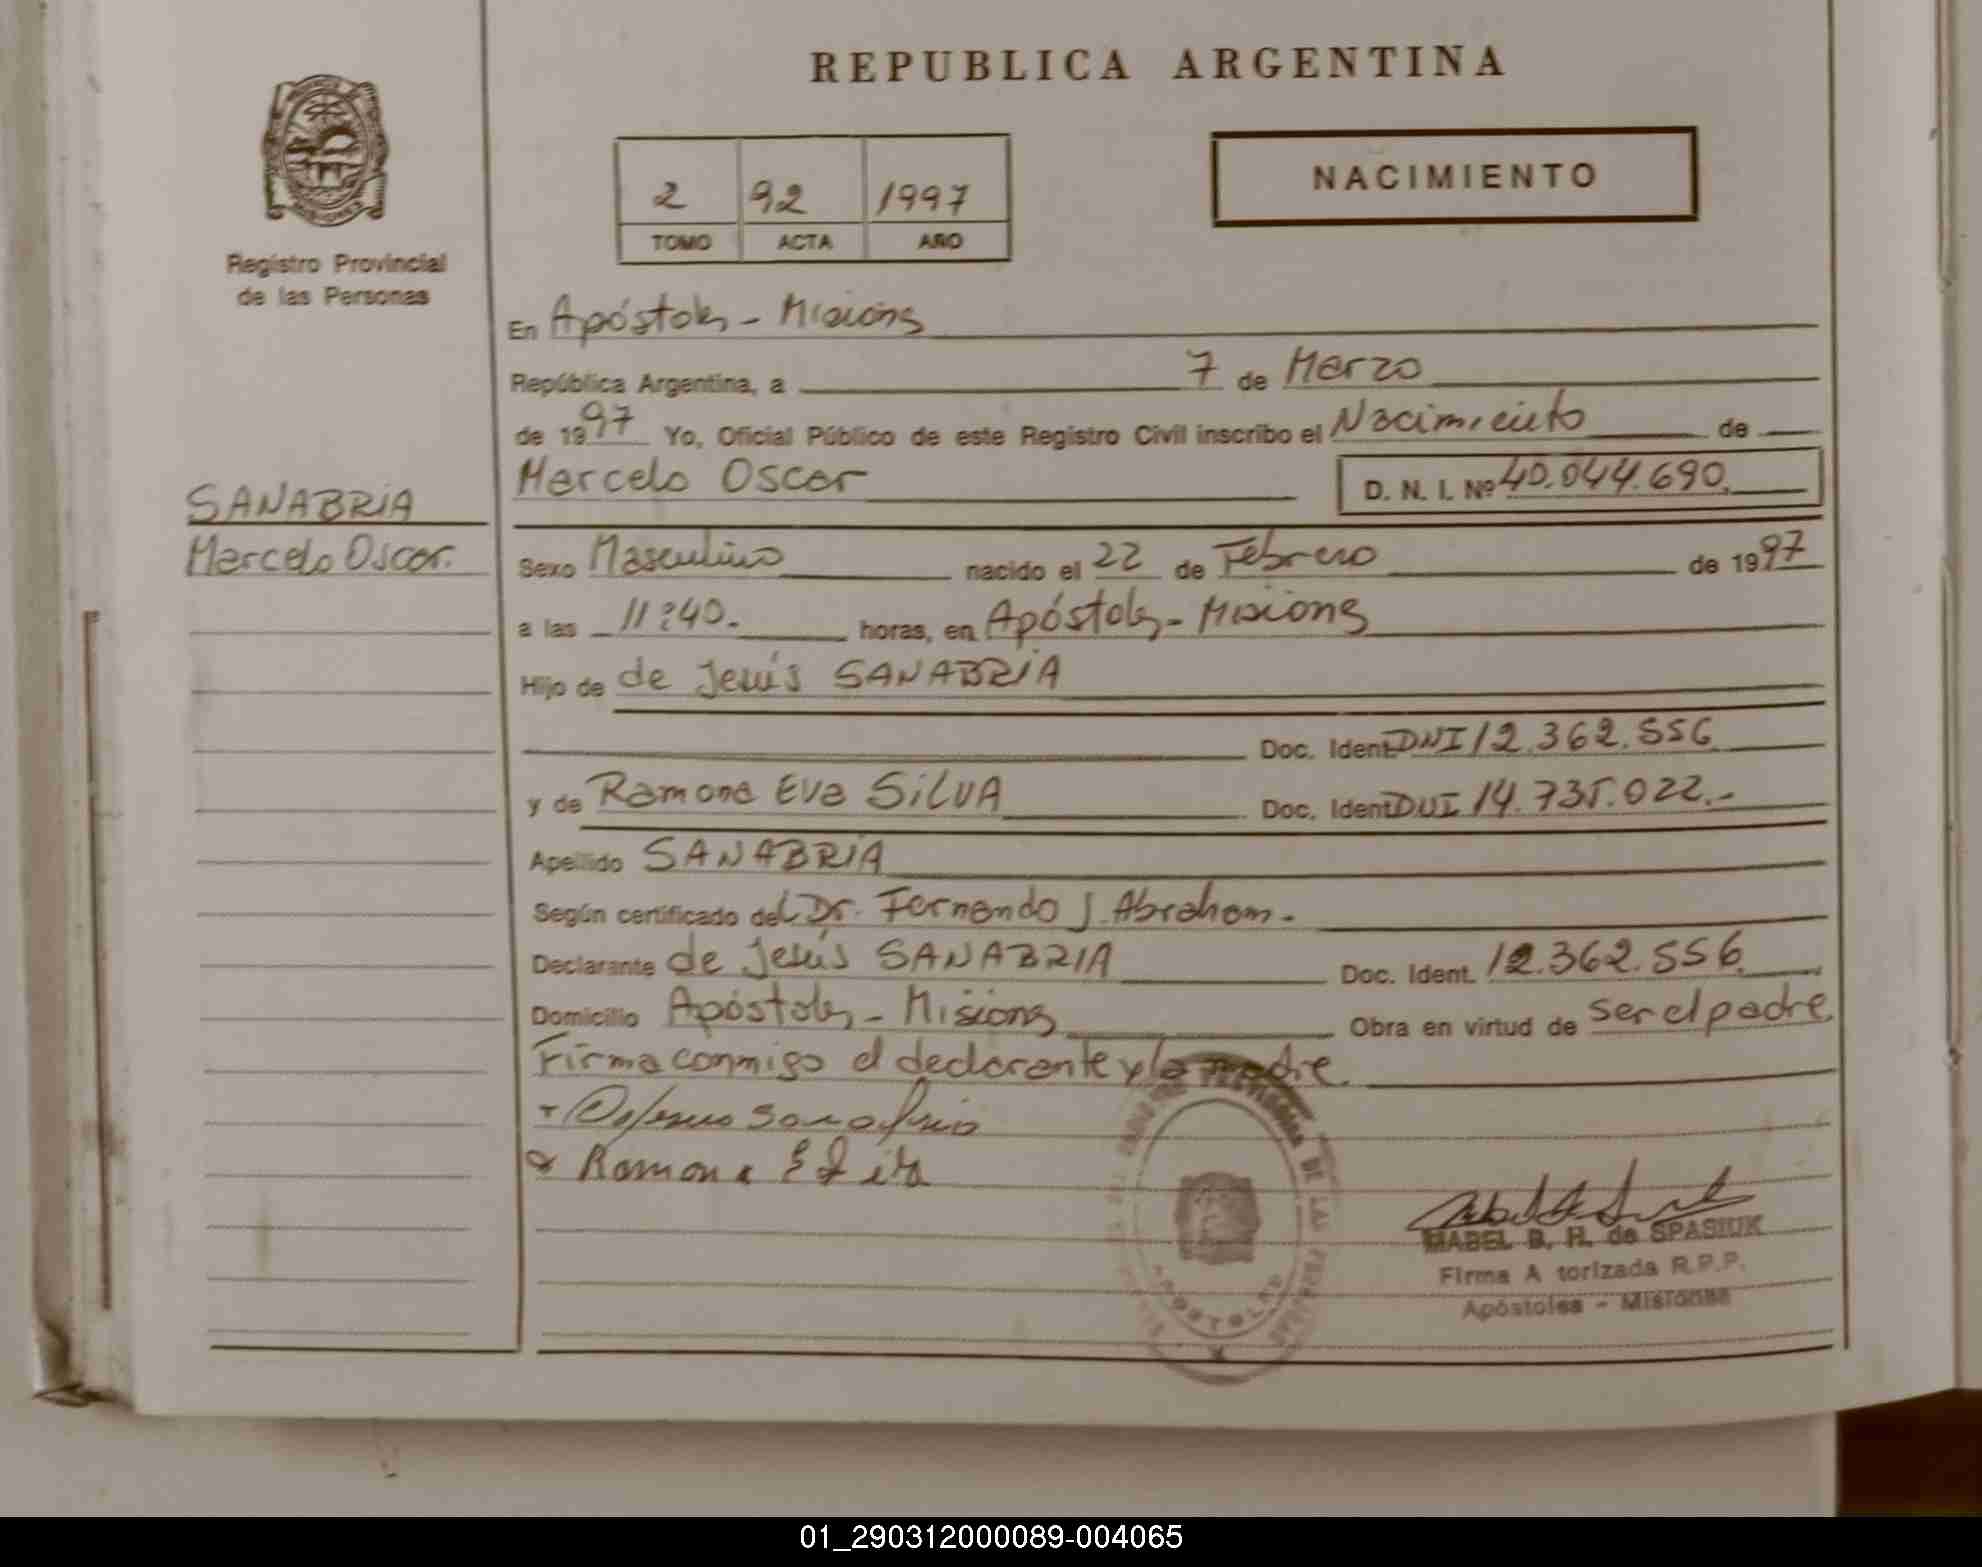 REPUBLICA ARGENTINA
NACIMIENTO
2 92 1997
TOMO ACTA AÑO
Registro Provincial
de las Personas
En Apóstoles - Misiones
República Argentina, a 7 de Marzo
de 1997 Yo, Oficial Público de este Registro Civil inscribo el Nacimiento de
Marcelo Oscar D. N. I. Nº 40.044.690.
SANABRIA
Marcelo Oscar.
Sexo Masculino nacido el 22 de Febrero de 1997
a las 11:40. horas, en Apóstoles - Misiones
Hijo de de Jesús SANABRIA
Doc. Ident. DNI 12.362.556
y de Ramona Eva SILVA Doc. Ident. DNI 14.735.022.-
Apellido SANABRIA
Según certificado del Dr. Fernando J. Abraham.
Declarante de Jesús SANABRIA Doc. Ident. 12.362.556.
Domicilio Apóstoles - Misiones Obra en virtud de ser el padre
Firma conmigo el declarante y la madre.
Ramona
MABEL B. H. de SPASIUK
Firma A torizada R.P.P.
Apóstoles - Misiones
DE LAS PERSONAS
APOSTOLES
01_290312000089-004065